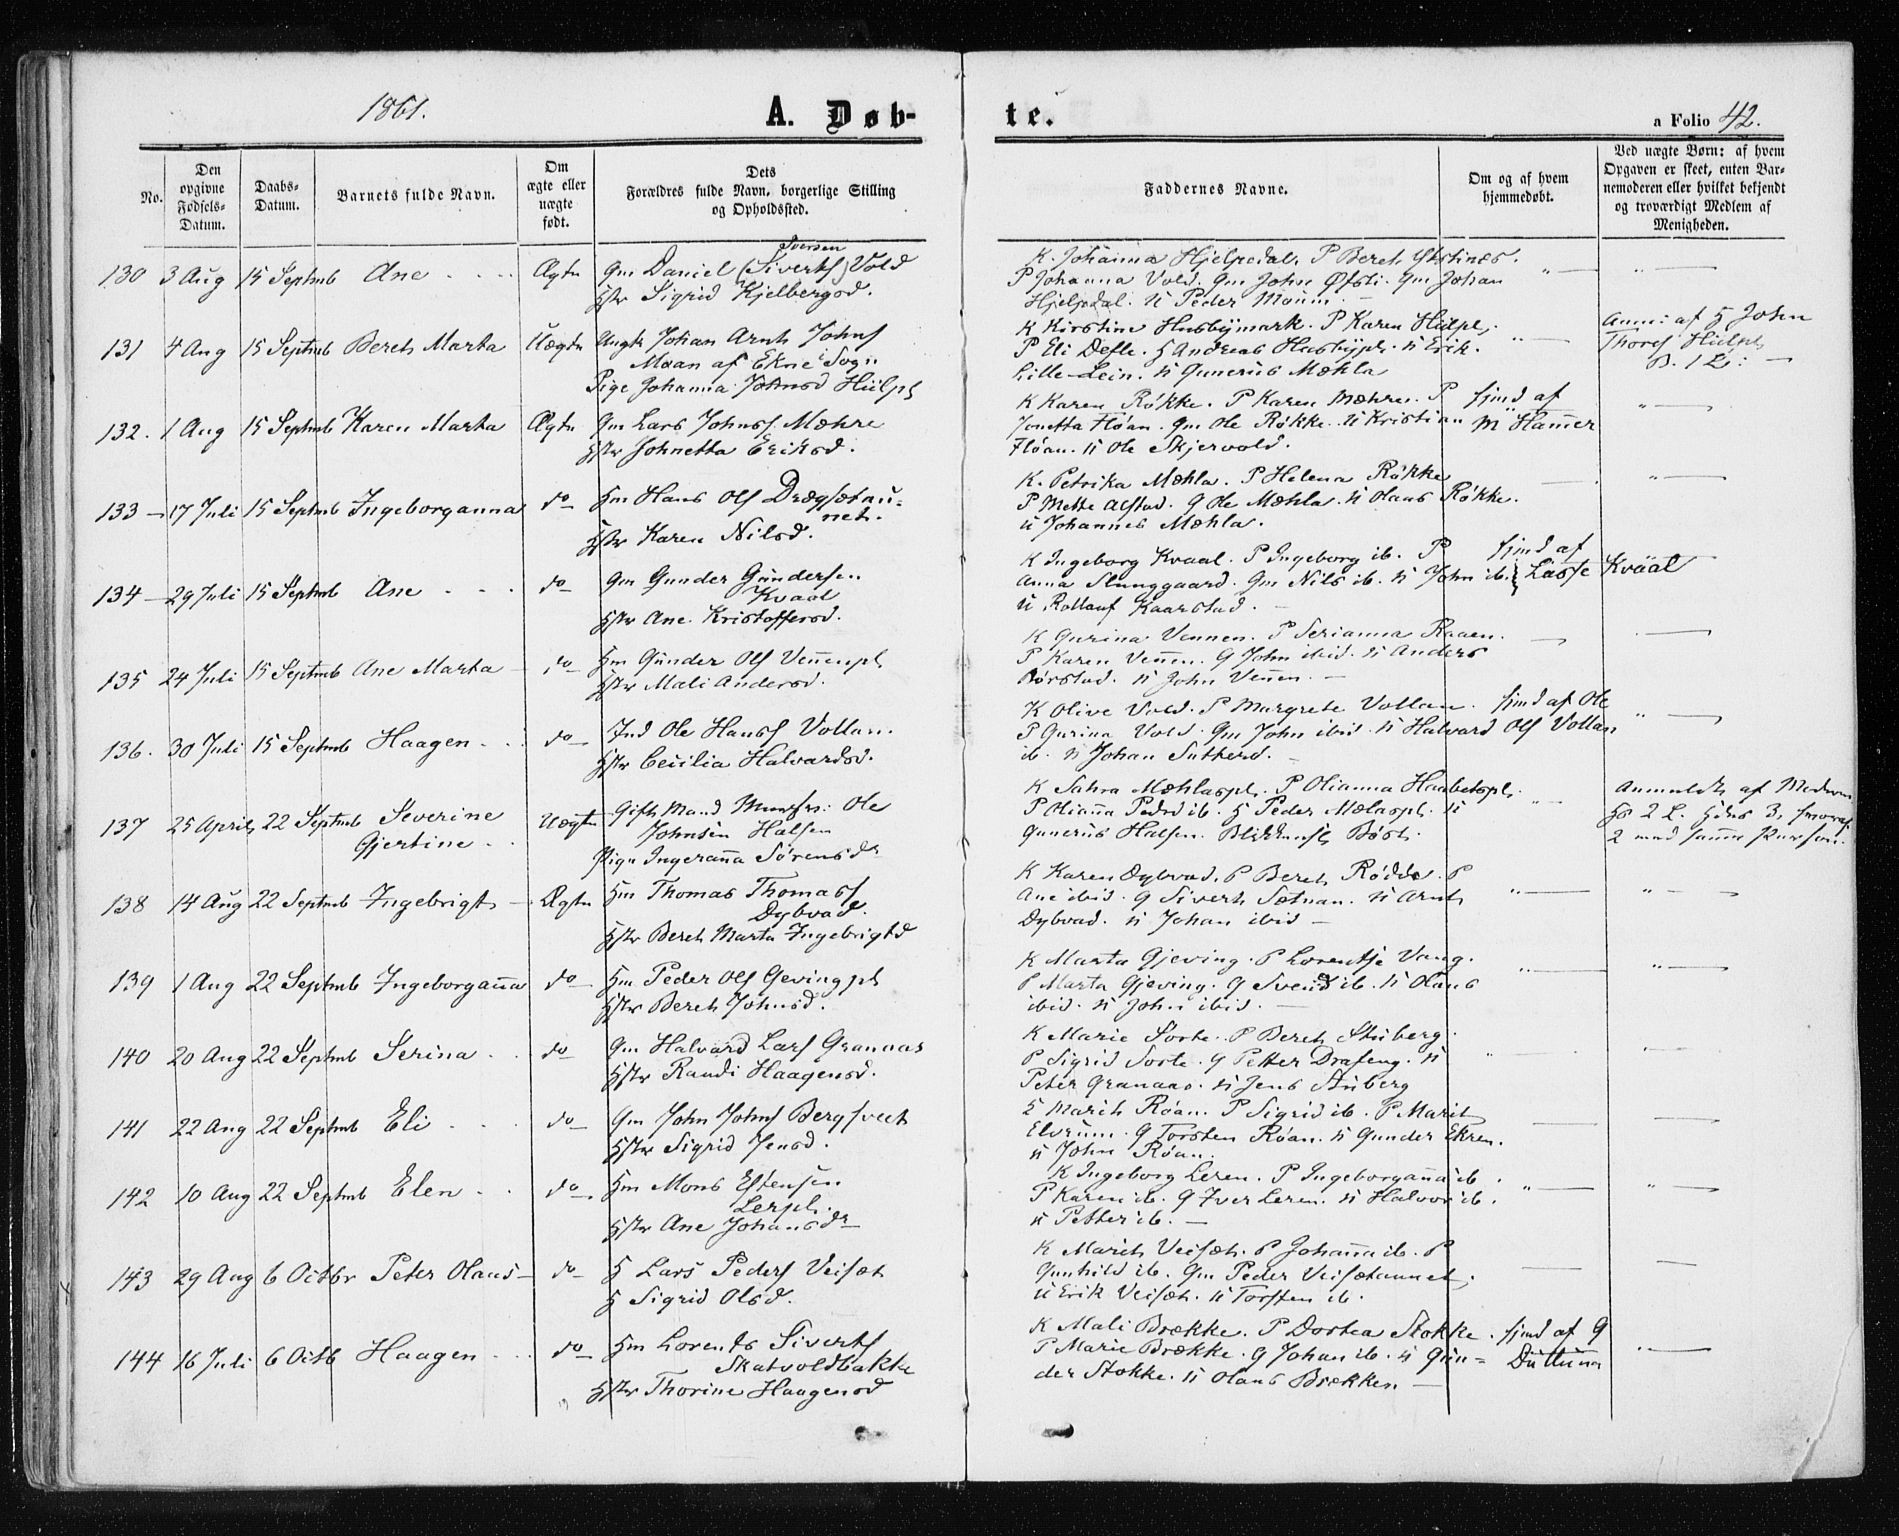 1861.
A. Døb-
te.
a Folio 42.
No.
Den opgivne Fødsels-Datum.
Daabs-Datum.
Barnets fulde Navn.
Om ægte eller uægte født.
Dets Forældres fulde Navn, borgerlige Stilling og Opholdssted.
Faddernes Navne.
Om og af hvem hjemmedøbt.
Ved uægte Børn: af hvem Opgaven er skeet, enten Barnemoderen eller hvilket bekjendt og troværdigt Medlem af Menigheden.
Iversen
130 3 Aug 15 Septmb Ane Ægte Gm Daniel (Siverts) Vold
Hstr Sigrid Kjelbergsd.
K. Johanna Hjelpedal. P Beret
P Johanna Vold. Gm John Øfsti. Gm Johan
Hjelpdal. U Peder
131 4 Aug 15 Septmb Beret Marta Uægte Ungk Johan Arnt Johns
Maan af Ekne Sogn
Pige Johanna Johnsd Hülpl
K Kirstine Husbymark. P Karen Hülpl.
P Eli Defle. H Andreas Husbypl. U Erik
Lille-Lein. U Gunerus Mæhla
af H John
Thores Hülpl
132. 1 Aug 15 Septmb Karen Marta Ægte Gm Lars Johns Mæhre
Hstr Johnetta Eriksd.
K Karen Røkke. P Karen Mæhre. P
Jonetta Fløan. Gm Ole Røkke. U Kristian
Fløan. U Ole Skjervold.
hjmd af
M Hammer
133 17 Juli 15 Septmb Ingeborganna do Hm Hans Ols Drægsetau-
net.
Hstr Karen Nilsd.
K. Petrika Mæhla. P Helena Røkke
P Mette Alstad. G Ole Mæhla. U Olaus Røkke.
U Johannes Mæhla.
134 29 Juli 15 Septmb Ane do Gm Gunder Gundersen
Kvaal
Hstr Ane Kristoffersd.
K Ingeborg Kvaal. P Ingeborg ib. P
Anna Slunggaard. Gm Nils ib. U John ib.
U Rollauf Kaarstad.
hjmd af
Lasse Kvaal
135 24 Juli 15 Septmb Ane Marta do Hm Gunder Ols Vennenpl
Hstr Mali Andersd.
K Gurina Vennen. P Serianna Raaen.
P Karen Vennen. G John ibid. U Anders
Børstad. U John Vennen.
136. 30 Juli 15 Septmb Haagen do Ind Ole Hans Vollan.
Hstr Cecilia Halvardsd.
K Olive Vold. P Margrete Vollan.
P Gurina Vold. Gm John ibid. U Halvard
ib. U Johan
hjmd af Ole
Ols Vollan
137 25 April 22 Septmb Severine
Gjertine
Uægte Gift Mand Ole
Johnsen Halsen
Pige Ingeranna Sørensdr
K Sahra Mæhlaspl. P Olianna Haabetspl.
P Olianna Pedrd ib. H Peder Mælaspl. U
Gunerus Halsen.
Anmeldt af Moderen
2 med samme Person.
138 14 Aug 22 Septmb Ingebrigt Ægte Hm Thomas Thomass
Dybvad.
Hstr Beret Marta Ingebrigtd
K Karen Dybvad. P Beret Rødde. P
Ane ibid. G Sivert Sætnan. U Arnt
Dybvad. U Johan ibid
139 1 Aug 22 Septmb Ingeborganna do Hm Peder Ols Gevingpl
Hstr Beret Johnsd.
K Marta Gjeving. P Lorentse Vang.
P Marta Gjeving. G Svend ib. U Olaus
ibid. U John ibid.
140 20 Aug 22 Septmb Serina do Gm Halvard Lars Granaas
Hstr Randi Haagensd.
K Marie Sorte. P Beret Stuberg.
P Sigrid Sorte. G Petter Drafeng. U
Peter Granaas. U Jens Stuberg
141 22 Aug 22 Septmb Eli do Gm John Johns Bergsveet
Hstr Sigrid Jensd.
K Marit Røan. P Sigrid ib. P Marit
Elvrum. G Torsten Røan. U Gunder Ekren.
U John Røan.
142 10 Aug 22 Septmb Elen do Hm Mons Estensen
Lerpl.
Hstr Ane Johansdr
K Ingeborg Leren. P Ingeborganna ib.
P Karen ib. G Iver Leren. U Halvor ib.
U Petter ib.
143 29 Aug 6 Octbr Peter Olaus do H Lars Peders Veiset
H Sigrid Olsd.
K Marit Veiset. P Johanna ib. P
Gunhild ib. Gm Peder Veisetaunet.
U Erik Veiset. U Torsten ib.
144 16 Juli 6 Octb Haagen do Hm Lorents Siverts
Skatvoldbakke
Hstr Thorine Haagensd
K Mali Brække. P Dortea Stokke.
P Marie Brække. G Johan ib. U Gun-
der Stokke. U Olaus Brækken
hjmd af G